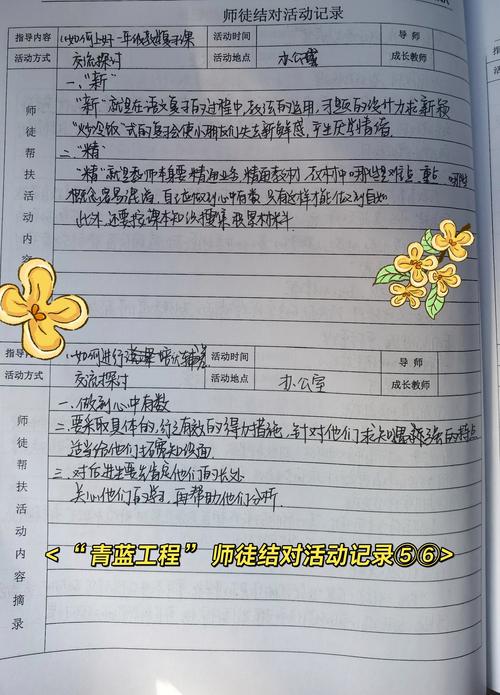 师徒结对活动记录
指导内容 如何上好一年级数学复习课 活动时间 导 师
活动方式 交流探讨 活动地点 办公室 成长教师
师徒帮扶活动内容
一、“新”
“新”就是在语文复习的过程中,教法的运用,习题的设计力求新颖
“炒冷饭”式的复习会使小朋友们失去新鲜感,产生厌学情绪。
二、“精”
“精”就是教师本身要精通业务,精通教材,教材中哪些是难点、重点、哪些
概念容易混淆,自己做到心中有数,只有这样才能做到自如
此外,还要按课本知识搜集
材料.
指导内容 如何进行 活动时间 导 师
活动方式 交流探讨 活动地点 办公室 成长教师
师徒帮扶活动内容摘录
一、做到心中有数
二、要采取具体的,行之有效的得力措施,针对他们求知欲 强的特点
适当给他们拓宽知识面.
三、对后进生要肯定他们的长处
关心他们的 ,再帮助他们分析.
<“青蓝工程”师徒结对活动记录⑤⑥>